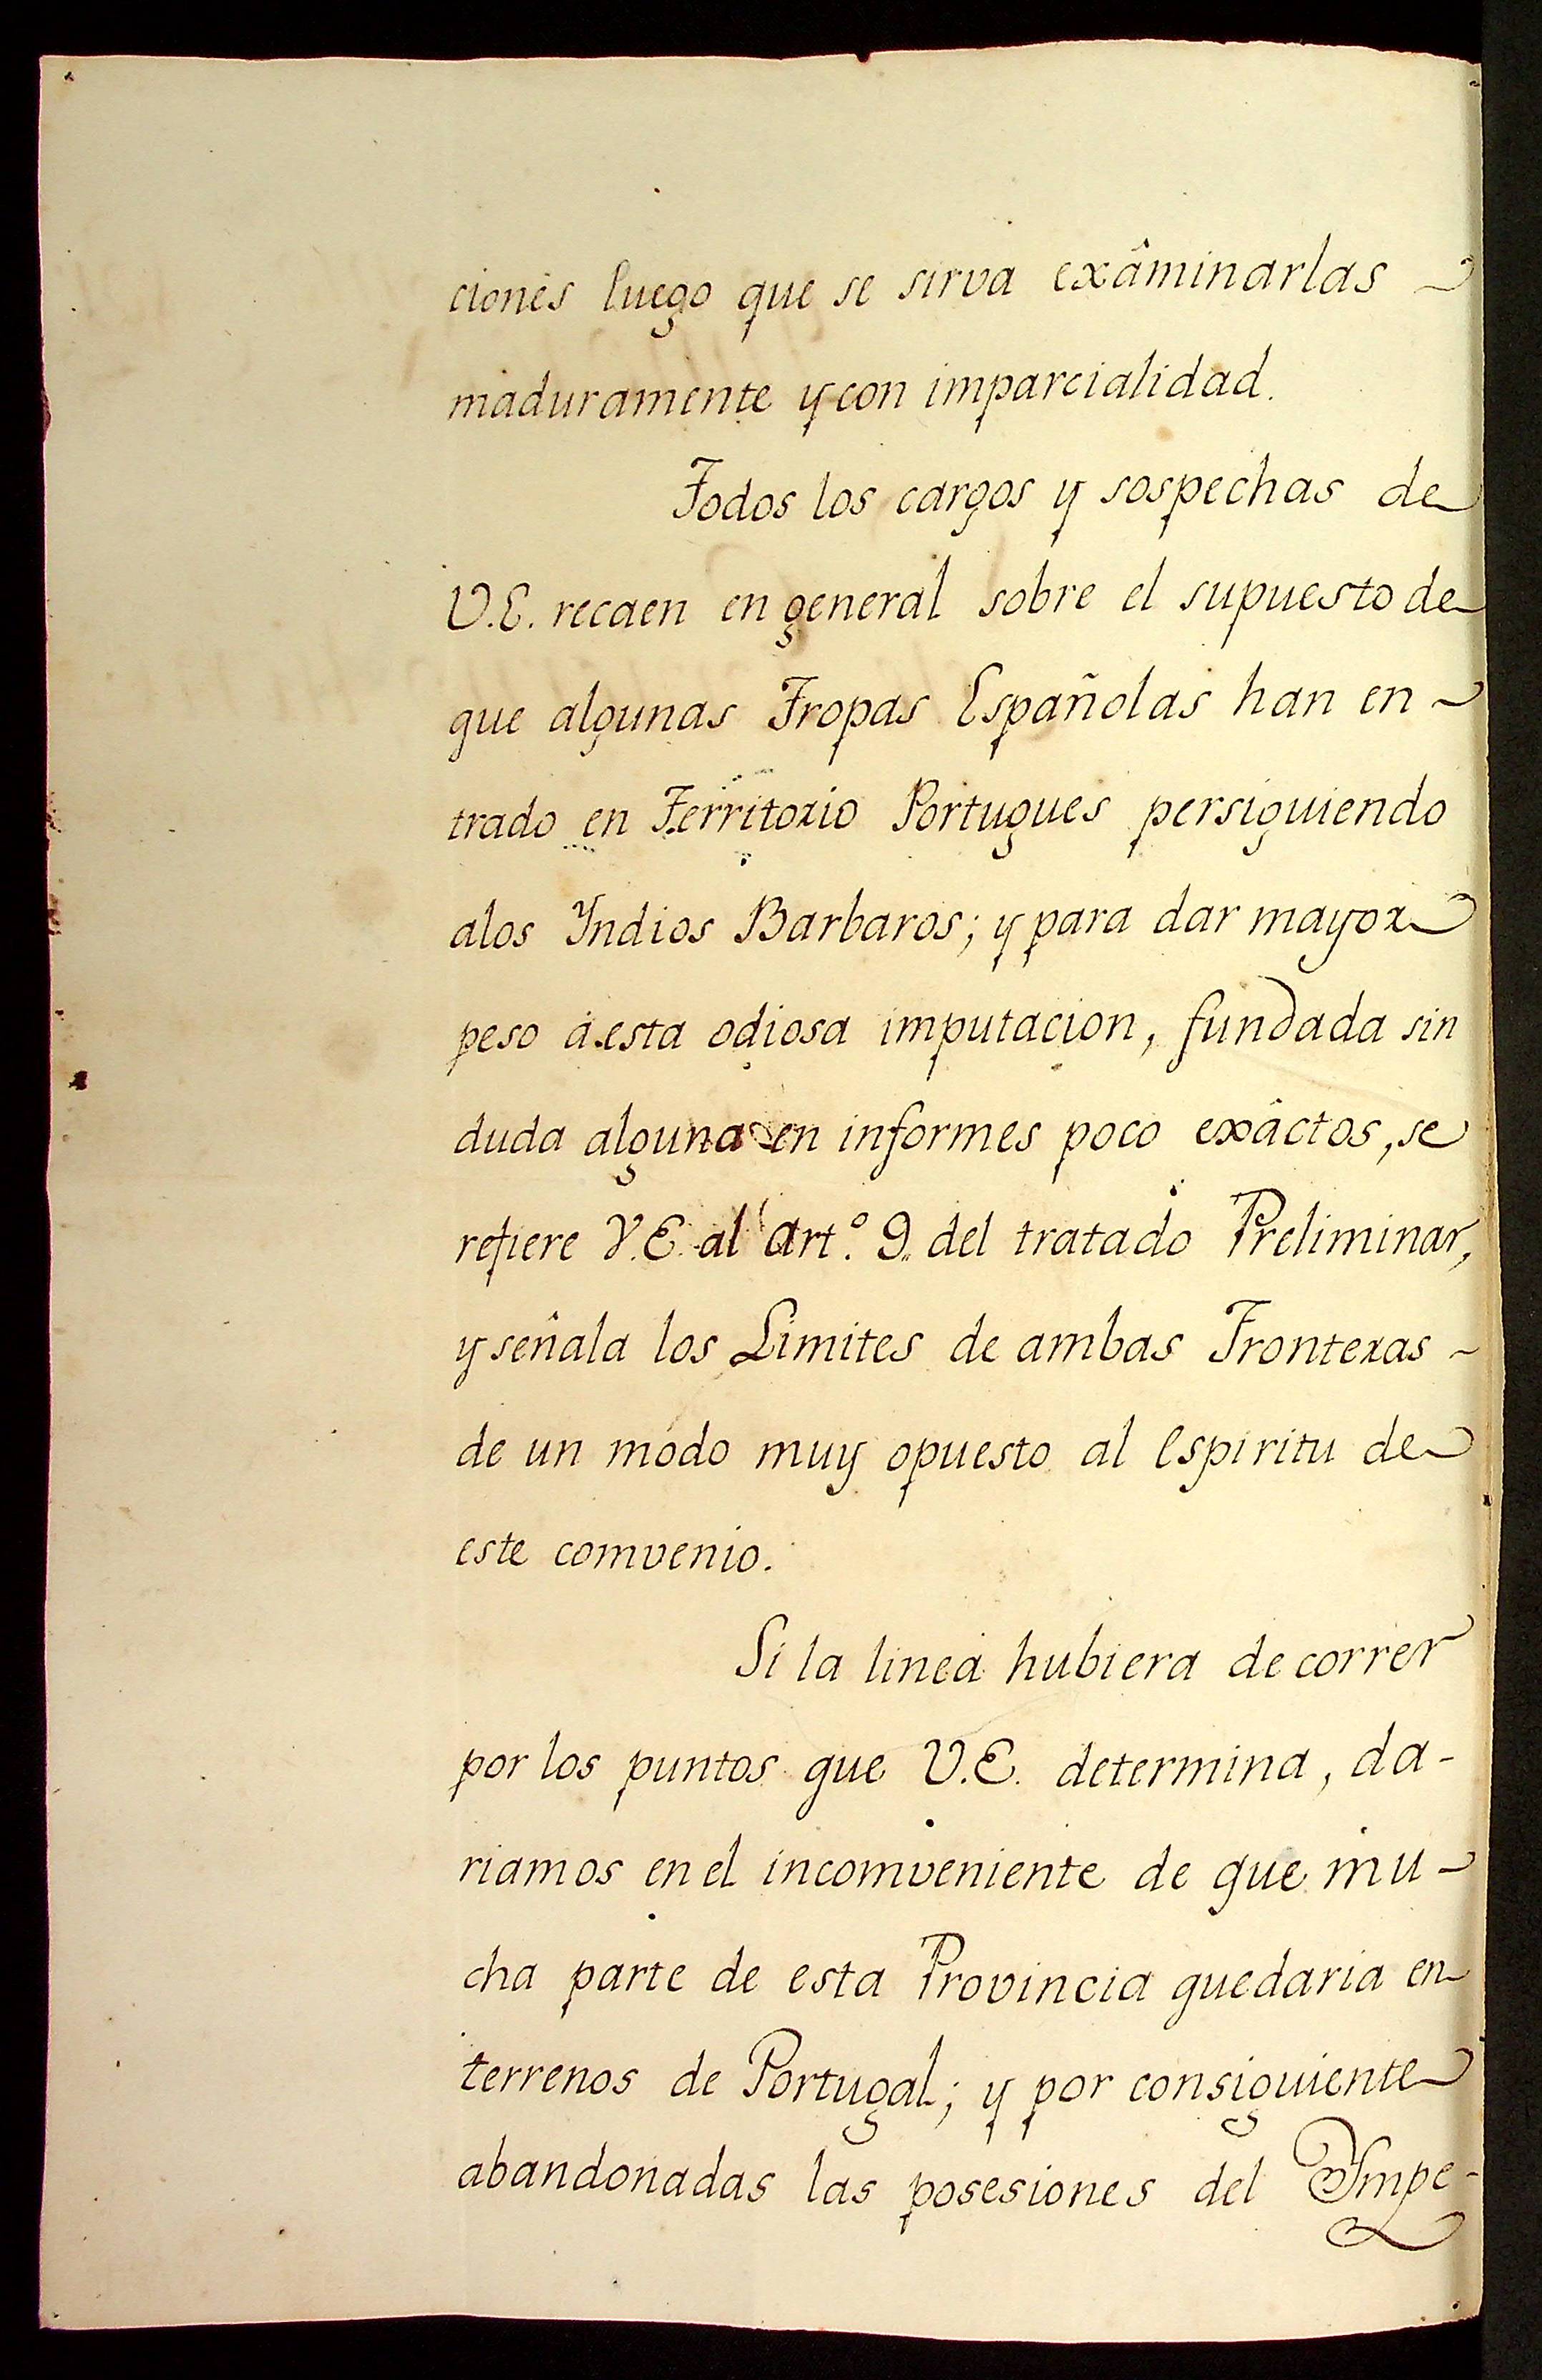 ciones luego que se sirva exâminarlas
maduramente y con imparcialidad.
Todos los cargos y sospechas de
V.E. recaen en general sobre el supuesto de
que algunas Tropas Españolas han en-
trado en Territorio Portugues persiguiendo
alos Yndios Barbaros; y para dar mayor
peso á esta odiosa imputacion, fundada sin
duda alguna en informes poco exâctos, se
refiere V.E. al Art.º 9. del tratado Preliminar,
y señala los Limites de ambas Fronteras
de un modo muy opuesto al espiritu de
este comvenio.
Si la linea hubiera de correr
por los puntos que V.E. determina, da-
riamos en el incomveniente de que mu-
cha parte de esta Provincia quedaria en
terrenos de Portugal; y por consiguiente
abandonadas las posesiones del Ympe-